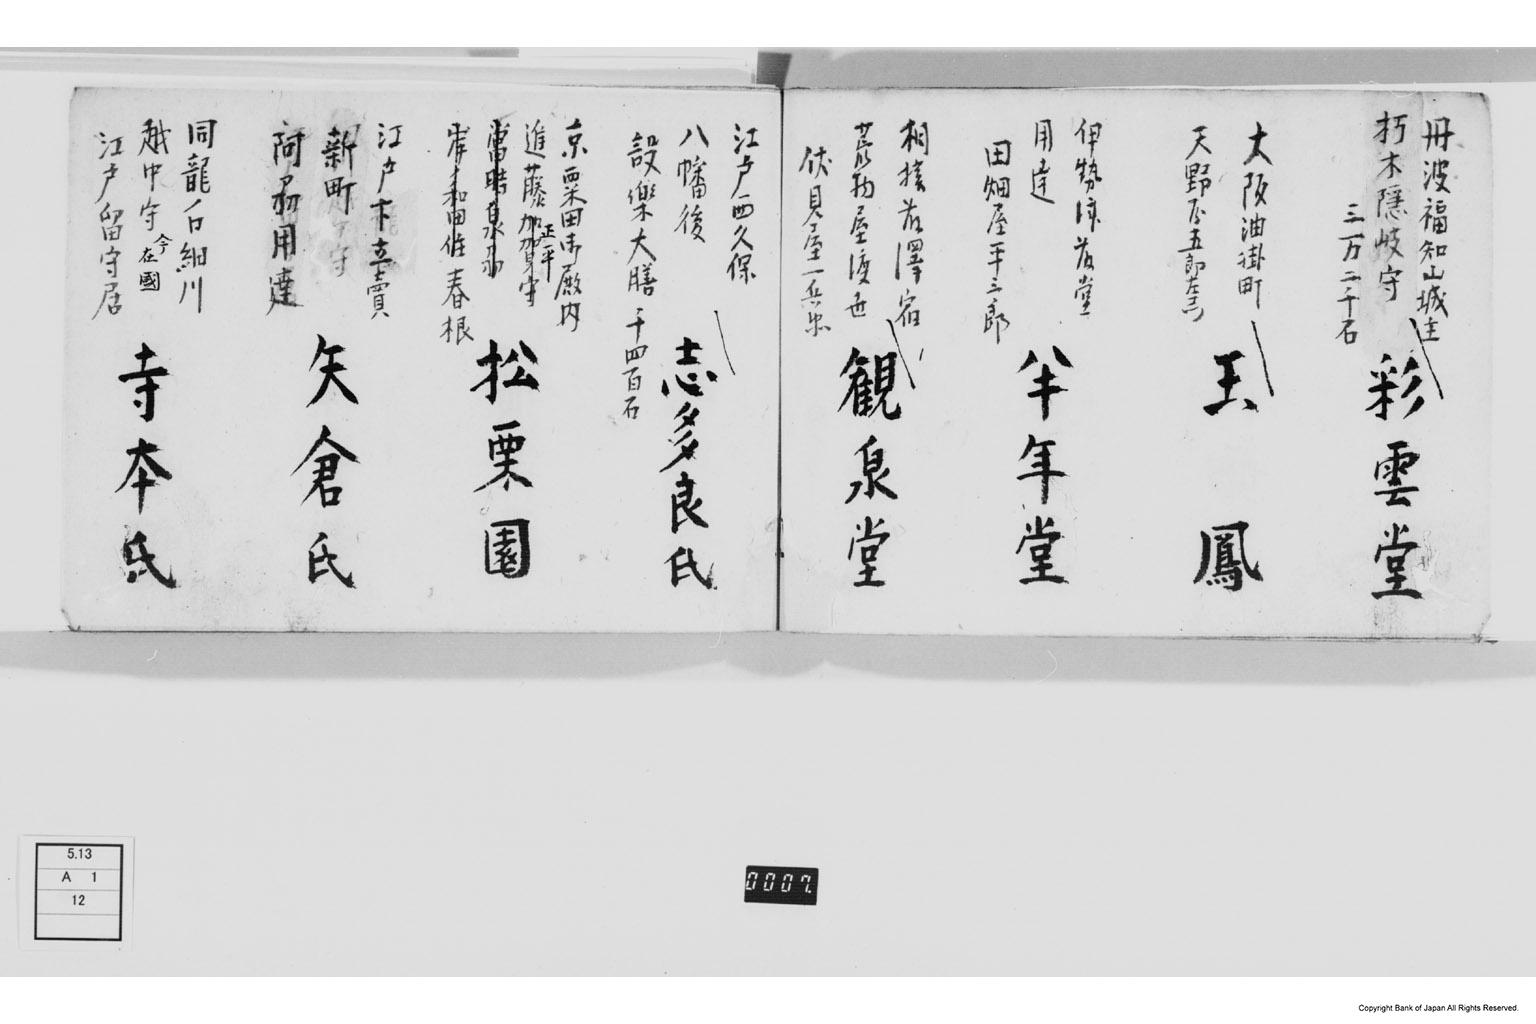 丹波福知山城主
朽木隠岐守
三万二千石
彩雲堂
大阪油掛町
天野屋五郎左衛門
玉鳳
伊勢津岩堂
用達
田畑屋平三郎
半年堂
相模藤澤宿
荒物屋渡世
伏見屋一兵衛
観泉堂
江戸西久保
八幡後
設樂大膳 千四百石
志多良氏
京粟田御殿内
進藤加賀守
正平
當時泉州
岸和田住春根
松栗園
江戸木立賣
新町
阿州用達
矢倉氏
同龍ノ口細川
越中守
今在國
江戸留守居
寺本氏
5.13
A 1
12
0007.
Copyright Bank of Japan All Rights Reserved.